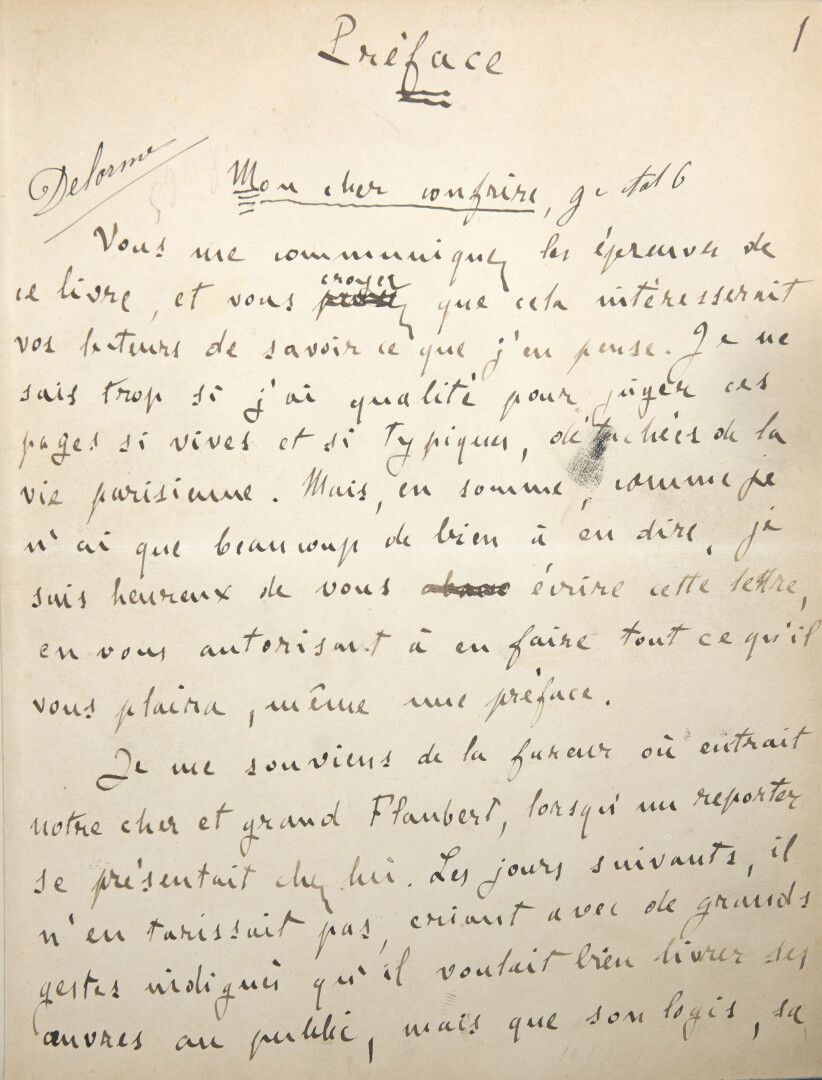 1
Préface
Delorme
Mon cher confrère,
Vous me communiquez les épreuves de
ce livre, et vous croyez que cela intéresserait
vos lecteurs de savoir ce que j'en pense. Je ne
sais trop si j'ai qualité pour juger ces
pages si vives et si typiques, détachées de la
vie parisienne. Mais, en somme, comme je
n'ai que beaucoup de bien à en dire, je
suis heureux de vous écrire cette lettre,
en vous autorisant à en faire tout ce qu'il
vous plaira, même une préface.
Je me souviens de la fureur où entrait
notre cher et grand Flaubert, lorsqu'un reporter
se présentait chez lui. Les jours suivants, il
n'en tarissait pas, criant avec de grands
gestes indignés qu'il voulait bien livrer ses
œuvres au public, mais que son logis, sa